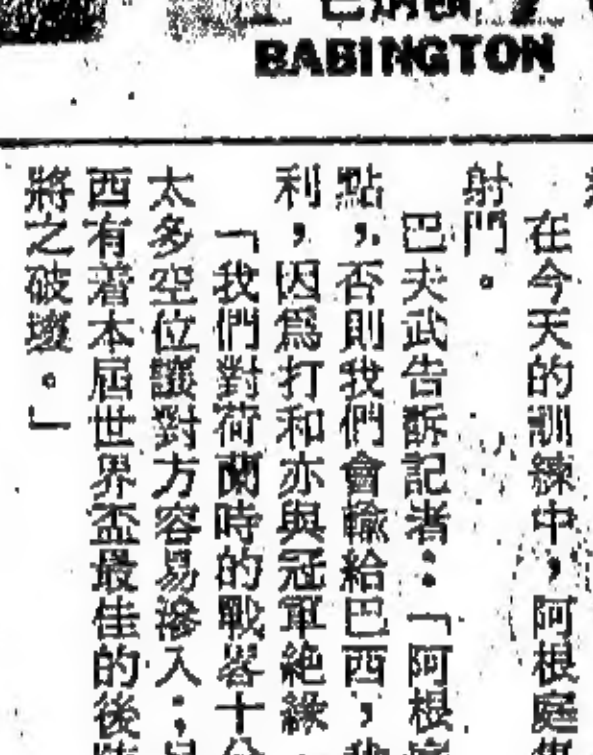 BABINGTON
在今天的訓練中，阿根庭
射門。
巴夫武告訴記者：「阿根
點，否則我們會輸給巴西，我
利，因爲打和亦與冠軍絶緣
「我們對荷蘭時的戰畧十分
太多空位讓對方容易滲入；
西有着本屆世界盃最佳的後
將之破壞。」